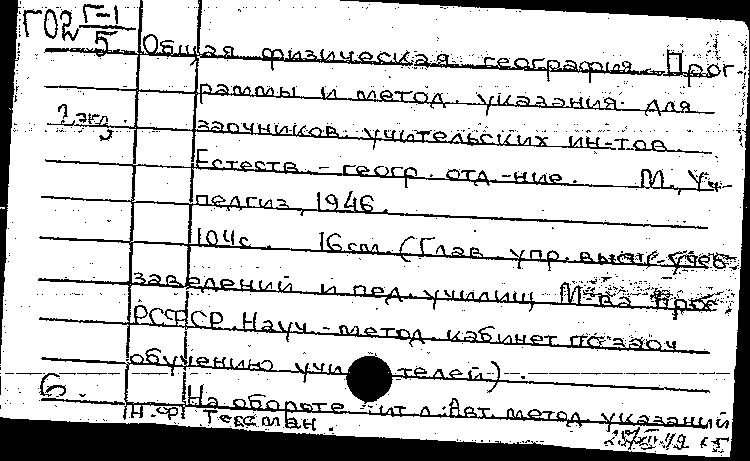 ГО2 Г-1/5
Общая физическая география. Прог-
раммы и метод. указания для
2 экз. заочников учительских ин-тов.
Естеств.-геогр. отд-ние. М., Уч-
педгиз, 1946.
104 с. 16 см. (Глав. упр. высш. учеб.
заведений и пед. училищ М-ва Прос.
РСФСР. Науч.-метод. кабинет по заоч.
обучению учителей).
6. На обороте тит. л.: Авт. метод. указаний
Н.Ф. Терсман.